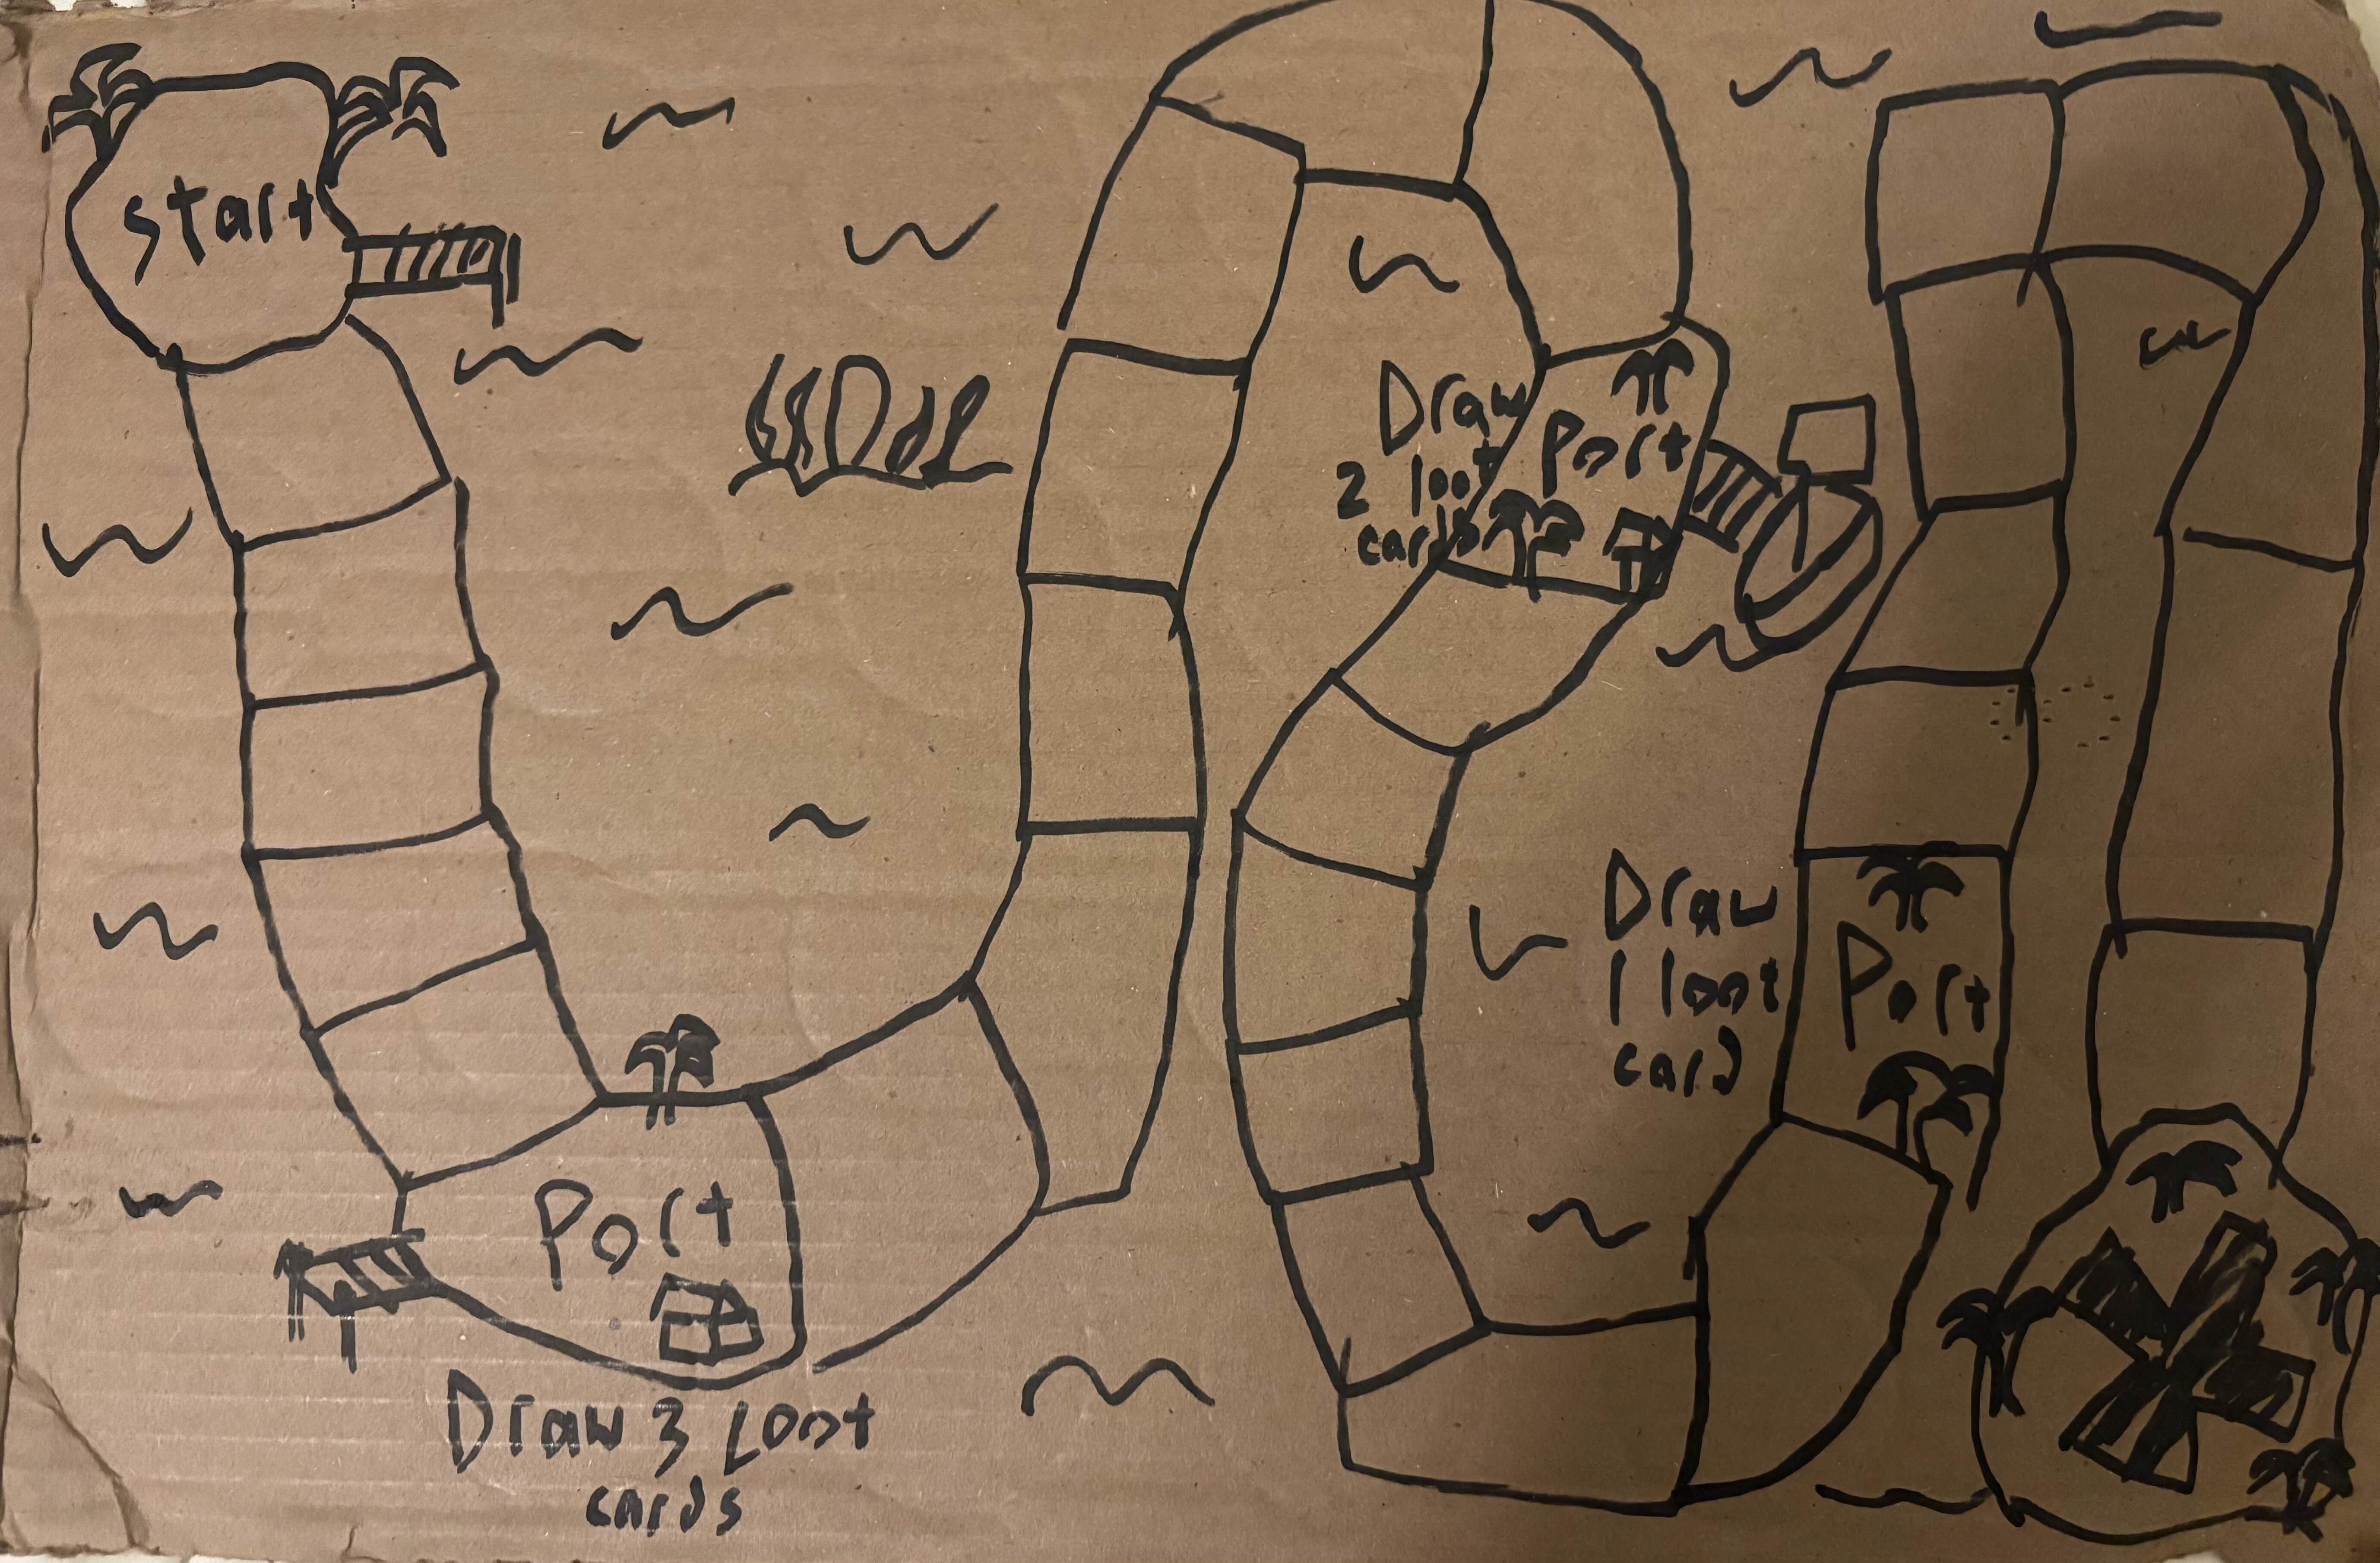 start
Port
Draw 3 Loot
cards
Draw
2 loot
cards
Port
Draw
1 loot
card
Port